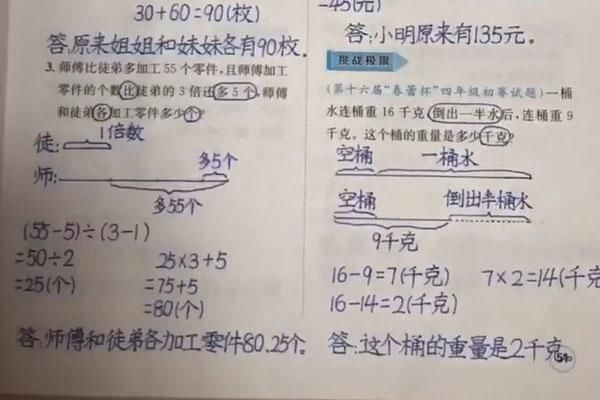 30+60=90(枚)
答:原来姐姐和妹妹各有90枚.
3. 师傅比徒弟多加工 55 个零件,且师傅加工
零件的个数比徒弟的 3 倍还多 5 个,师傅
和徒弟各加工零件多少个?
1倍数
徒:
多5个
师:
多55个
(55-5)÷(3-1)
=50÷2
=25(个)
25×3+5
=75+5
=80(个)
答:师傅和徒弟各加工零件80.25个.
=45(元)
答:小明原来有135元.
挑战极限
(第十六届“春蕾杯”四年级初赛试题)一桶
水连桶重 16 千克,倒出一半水后,连桶重 9
千克。这个桶的重量是多少千克?
空桶 一桶水
空桶 倒出半桶水
9千克
16-9=7(千克) 7×2=14(千克
16-14=2(千克)
答:这个桶的重量是2千克